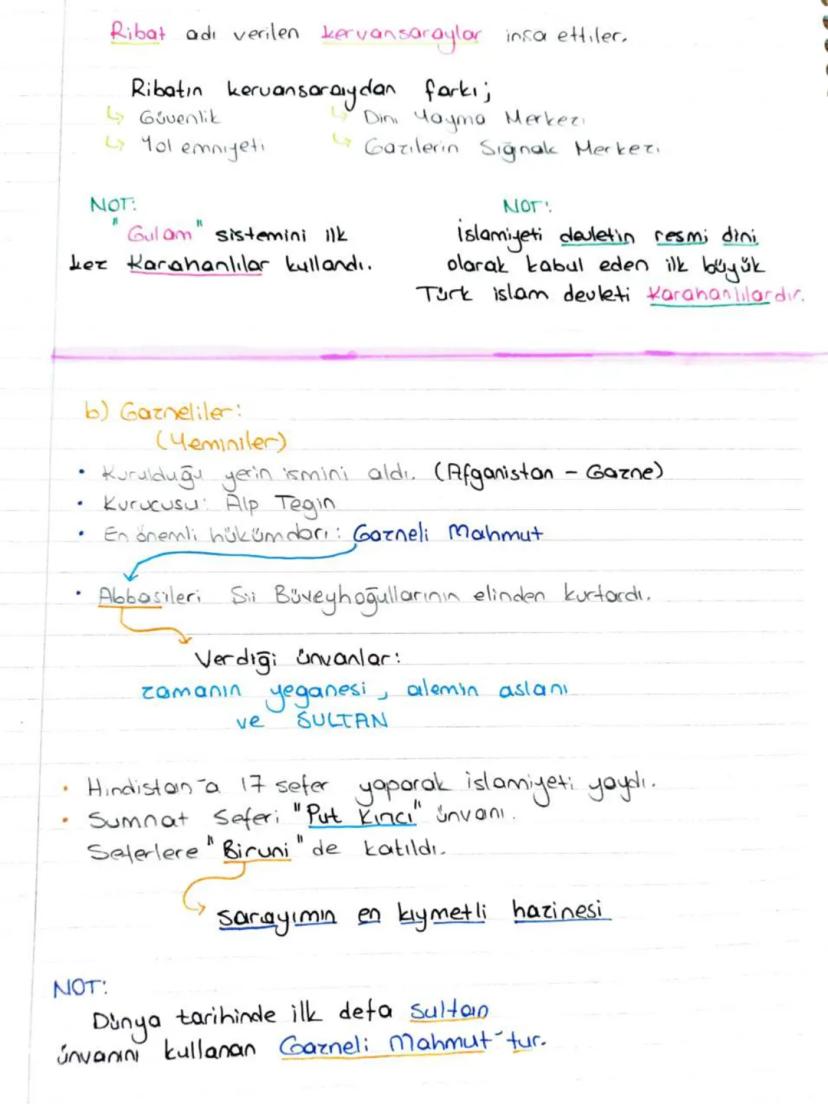 Ribat adı verilen kervansaraylar inşa ettiler.
Ribatın kervansaraydan farkı;
↳ Güvenlik
↳ Yol emniyeti
↳ Dini Yayma Merkezi
↳ Gazilerin Sığnak Merkezi
NOT:
"Gulam" sistemini ilk
kez Karahanlılar kullandı.
NOT:
İslamiyeti devletin resmi dini
olarak kabul eden ilk büyük
Türk islam devleti Karahanlılardır.
b) Gazneliler:
(Yeminiler)
• Kurulduğu yerin ismini aldı. (Afganistan - Gazne)
• Kurucusu: Alp Tegin
• En önemli hükümdarı: Gazneli Mahmut
• Abbasileri Şii Büveyhoğullarının elinden kurtardı.
Verdiği ünvanlar:
zamanın yeganesi, alemin aslanı
ve SULTAN
• Hindistan'a 17 sefer yaparak islamiyeti yaydı.
• Sumnat Seferi "Put Kırıcı" ünvanı.
Seferlere "Biruni" de katıldı.
sarayımın en kıymetli hazinesi
NOT:
Dünya tarihinde ilk defa sultan
ünvanını kullanan Gazneli Mahmut'tur.